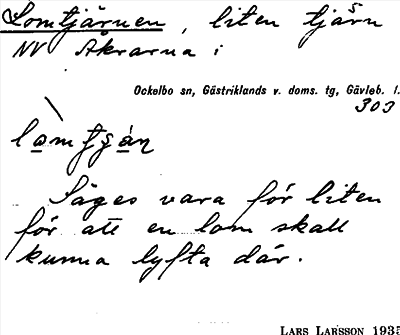 Lomtjärnen, liten tjärn
NV Åkrarna i
Ockelbo sn, Gästriklands v. doms. tg, Gävleb. l.
303
Säges vara för liten
för att en lom skall
kunna lyfta där.
LARS LARSSON 1935